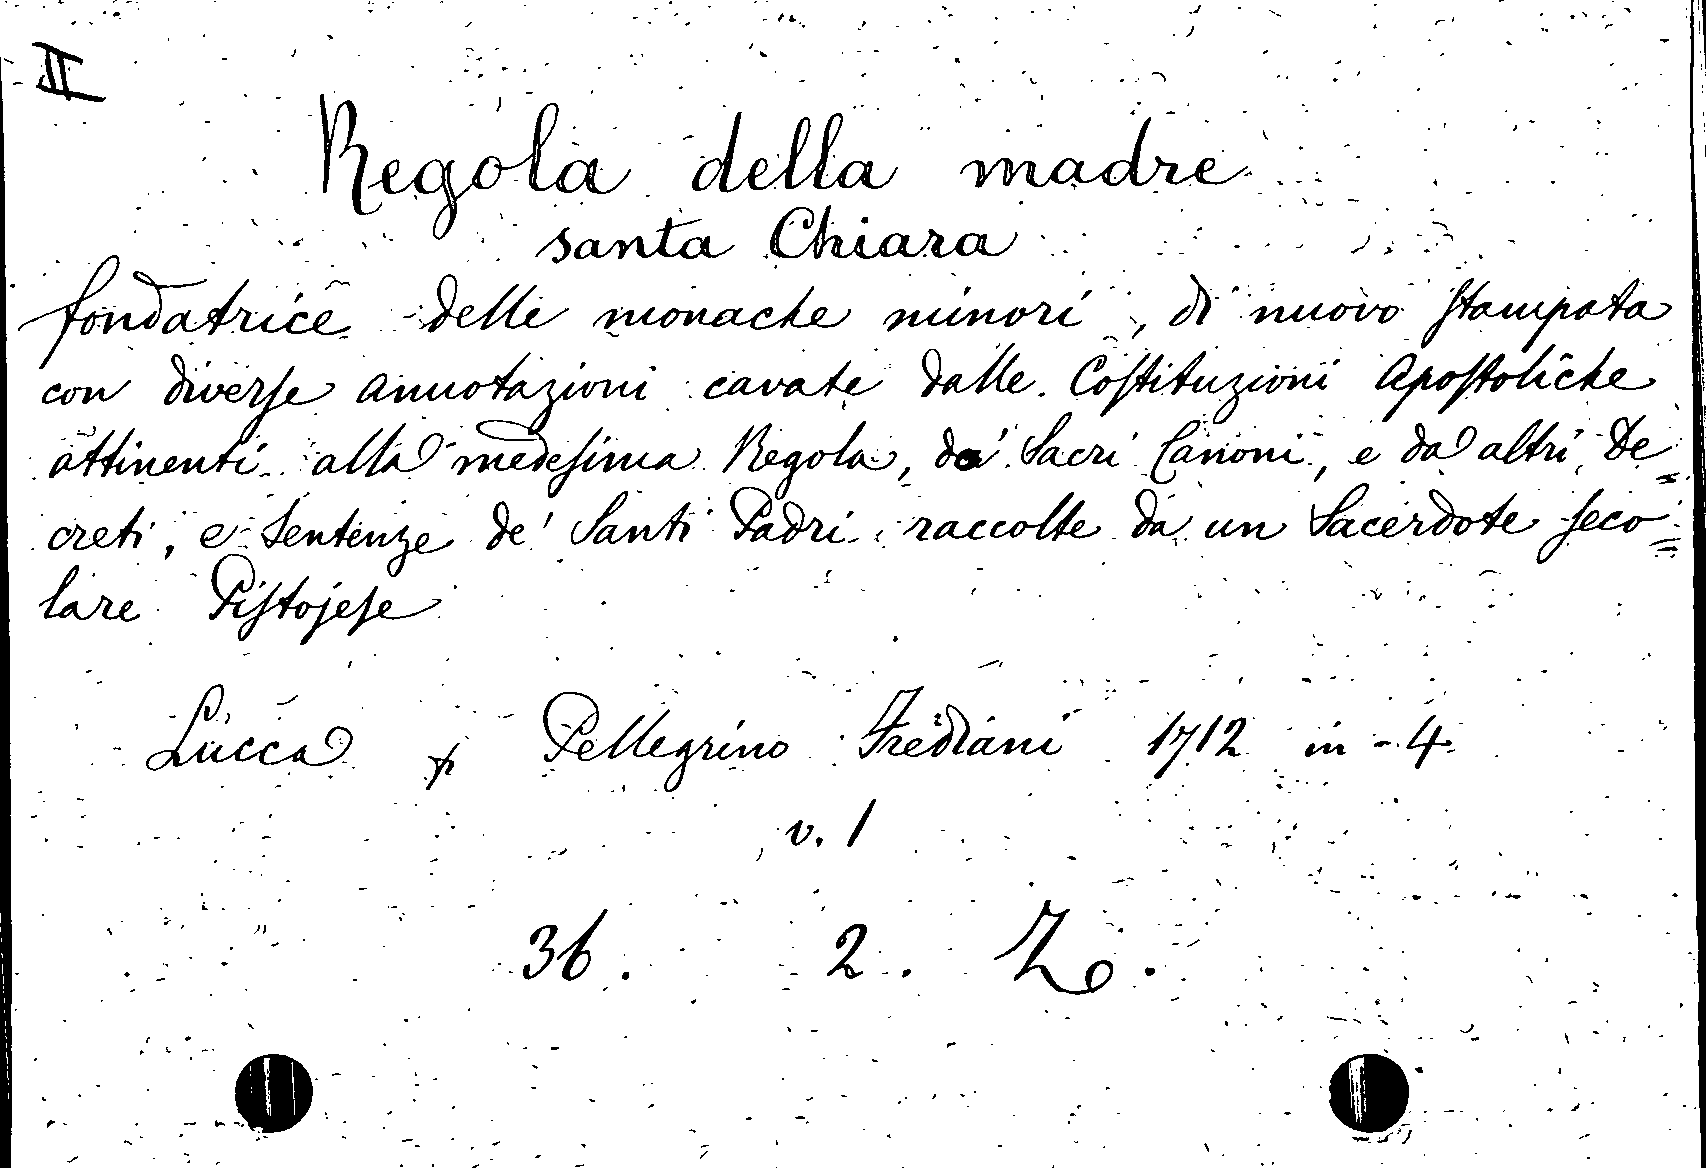 II
Regola della madre
santa Chiara
fondatrice delle monache minori, di nuovo stampata
con diverse annotazioni cavate dalle Costituzioni Apostoliche
attinenti alla medesima Regola, da' Sacri Canoni, e da altri De=
creti, e Sentenze de' Santi Padri raccolte da un Sacerdote seco=
lare Pistojese
Lucca p Pellegrino Frediani 1712 in-4
v. 1
36. 2. Z.